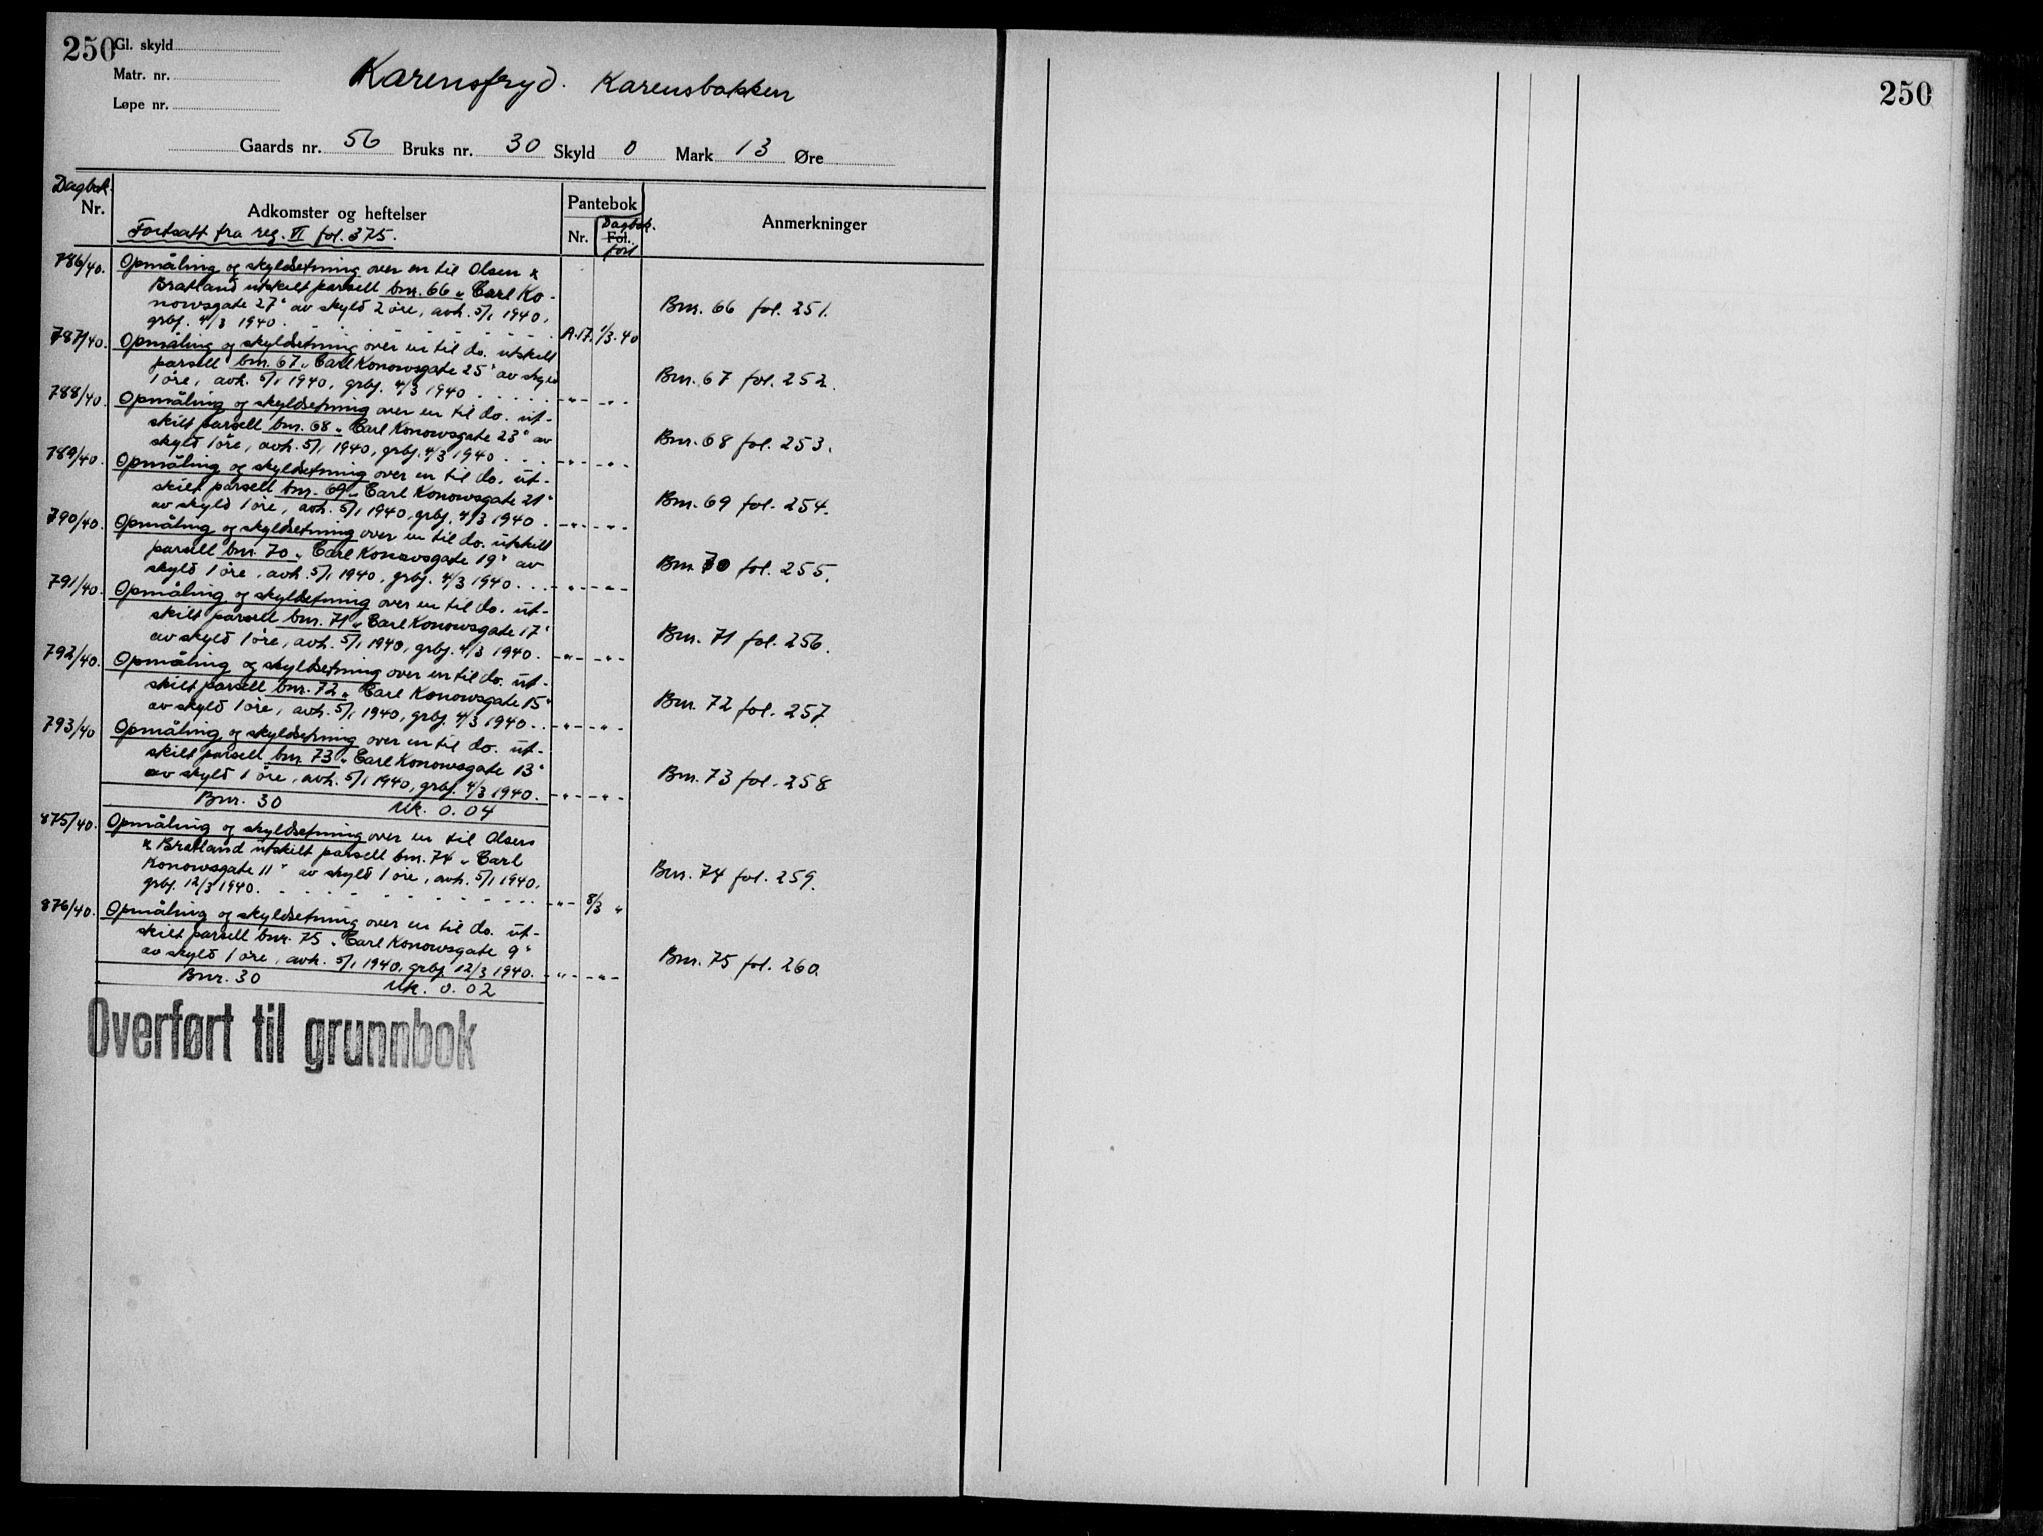 250
Gl. skyld
Matr. nr.
Løpe nr.
Karensfryd. Karensbakken
Gaards nr. 56 Bruks nr. 30 Skyld 0 Mark 13 Øre
Dagbok.
Nr.
Adkomster og heftelser
Pantebok
Nr.
Fol.
Dagbok.
ført
Anmerkninger
Fortsatt fra reg. VI fol. 375.
786/40. Opmåling og skyldsetning over en til Olsen &
Bratland utskilt parsell bnr. 66 „Carl Ko-
nowsgate 27" av skyld 2 øre, avh. 5/1 1940,
grbf. 4/3 1940. A.17. 1/3.40
Bnr. 66 fol. 251.
787/40. Opmåling og skyldsetning over en til do. utskilt
parsell bnr. 67 „Carl Konowsgate 25" av skyld
1 øre, avh. 5/1 1940, grbf. 4/3 1940 . . . . . -"- -"-
Bnr. 67 fol. 252.
788/40. Opmåling og skyldsetning over en til do. ut-
skilt parsell bnr. 68 „Carl Konowsgate 23" av
skyld 1 øre, avh. 5/1 1940, grbf. 4/3 1940 . . . -"- -"-
Bnr. 68 fol. 253.
789/40. Opmåling og skyldsetning over en til do. ut-
skilt parsell bnr. 69 „Carl Konowsgate 21"
av skyld 1 øre, avh. 5/1 1940, grbf. 4/3 1940 . -"- -"-
Bnr. 69 fol. 254.
790/40. Opmåling og skyldsetning over en til do. utskilt
parsell bnr. 70 „Carl Konowsgate 19" av
skyld 1 øre, avh. 5/1 1940, grbf. 4/3 1940 . . . -"- -"-
Bnr. 70 fol. 255.
791/40. Opmåling og skyldsetning over en til do. ut-
skilt parsell bnr. 71 „Carl Konowsgate 17"
av skyld 1 øre, avh. 5/1 1940, grbf. 4/3 1940 . -"- -"-
Bnr. 71 fol. 256.
792/40. Opmåling og skyldsetning over en til do. ut-
skilt parsell bnr. 72 „Carl Konowsgate 15"
av skyld 1 øre, avh. 5/1 1940, grbf. 4/3 1940 . . -"- -"-
Bnr. 72 fol. 257.
793/40 Opmåling og skyldsetning over en til do. ut-
skilt parsell bnr. 73 „Carl Konowsgate 13"
av skyld 1 øre, avh. 5/1 1940, grbf. 4/3 1940. -"- -"-
Bnr. 73 fol. 258
Bnr. 30 Mk. 0.04
875/40. Opmåling og skyldsetning over en til Olsen
& Bratland utskilt parsell bnr. 74 „Carl
Konowsgate 11" av skyld 1 øre, avh. 5/1 1940,
grbf. 12/3 1940. . . . . . . . . . . -"- 8/3 "
Bnr. 74 fol. 259.
876/40. Opmåling og skyldsetning over en til do. ut-
skilt parsell bnr. 75 „Carl Konowsgate 9"
av skyld 1 øre, avh. 5/1 1940, grbf. 12/3 1940. -"- -"-
Bnr. 75 fol. 260.
Bnr. 30 Mk. 0.02
Overført til grunnbok
250